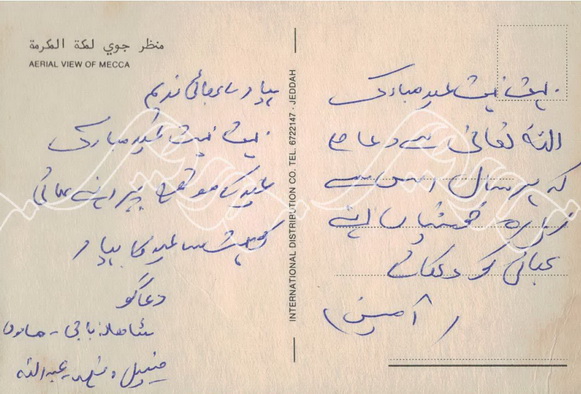 منظر جوي لمكة المكرمة
AERIAL VIEW OF MECCA
پیارے بھائی ندیم
بہت بہت عید مبارک
عید کے موقع پر اپنے بھائی
کو بہت سا عید کا پیار
دعا گو
باجی
عبداللہ
INTERNATIONAL DISTRIBUTION CO. TEL. 6722147 - JEDDAH
بہت بہت عید مبارک
اللہ تعالیٰ سے دعا ہے
کہ ہر سال اس سے
زیادہ خوشیاں اپنے
بھائی کو دکھائے
(آمین)